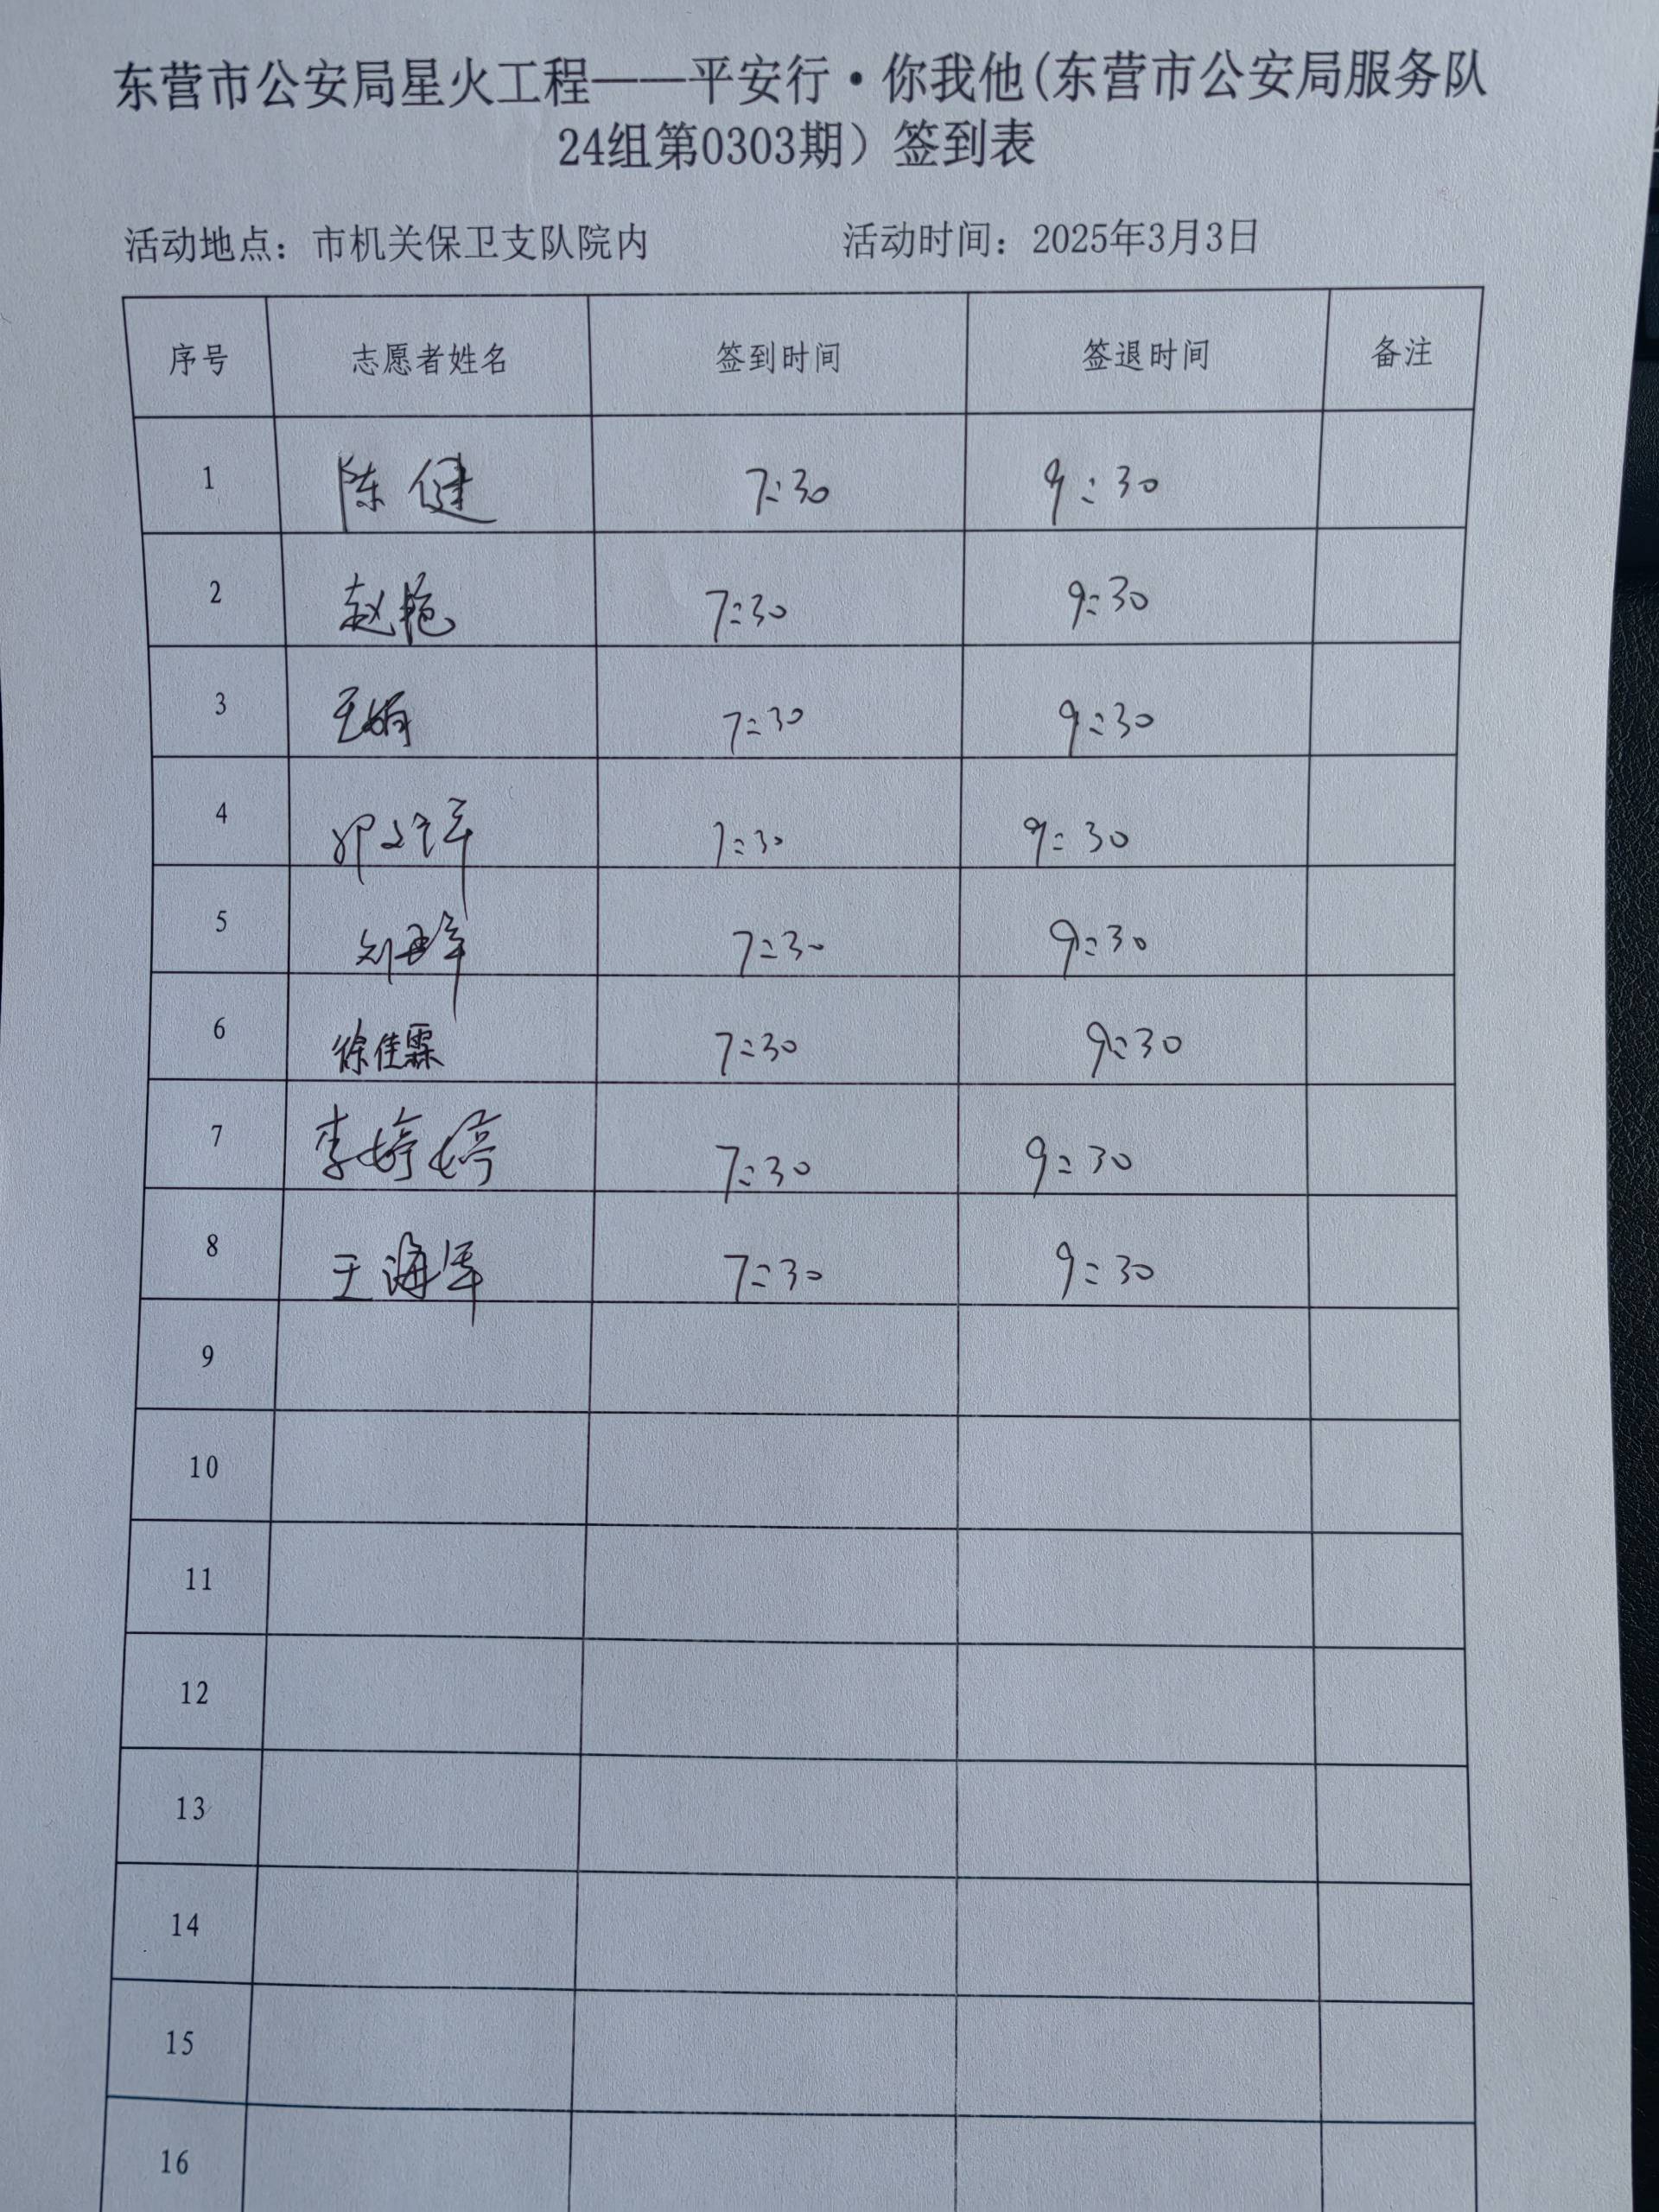 东营市公安局星火工程——平安行·你我他(东营市公安局服务队
24组第0303期）签到表
活动地点：市机关保卫支队院内 活动时间：2025年3月3日
序号 志愿者姓名 签到时间 签退时间 备注
1 陈健 7:30 9:30
2 赵艳 7:30 9:30
3 王娟 7:30 9:30
4 7:30 9:30
5 7:30 9:30
6 徐佳霖 7:30 9:30
7 李婷婷 7:30 9:30
8 王海军 7:30 9:30
9
10
11
12
13
14
15
16